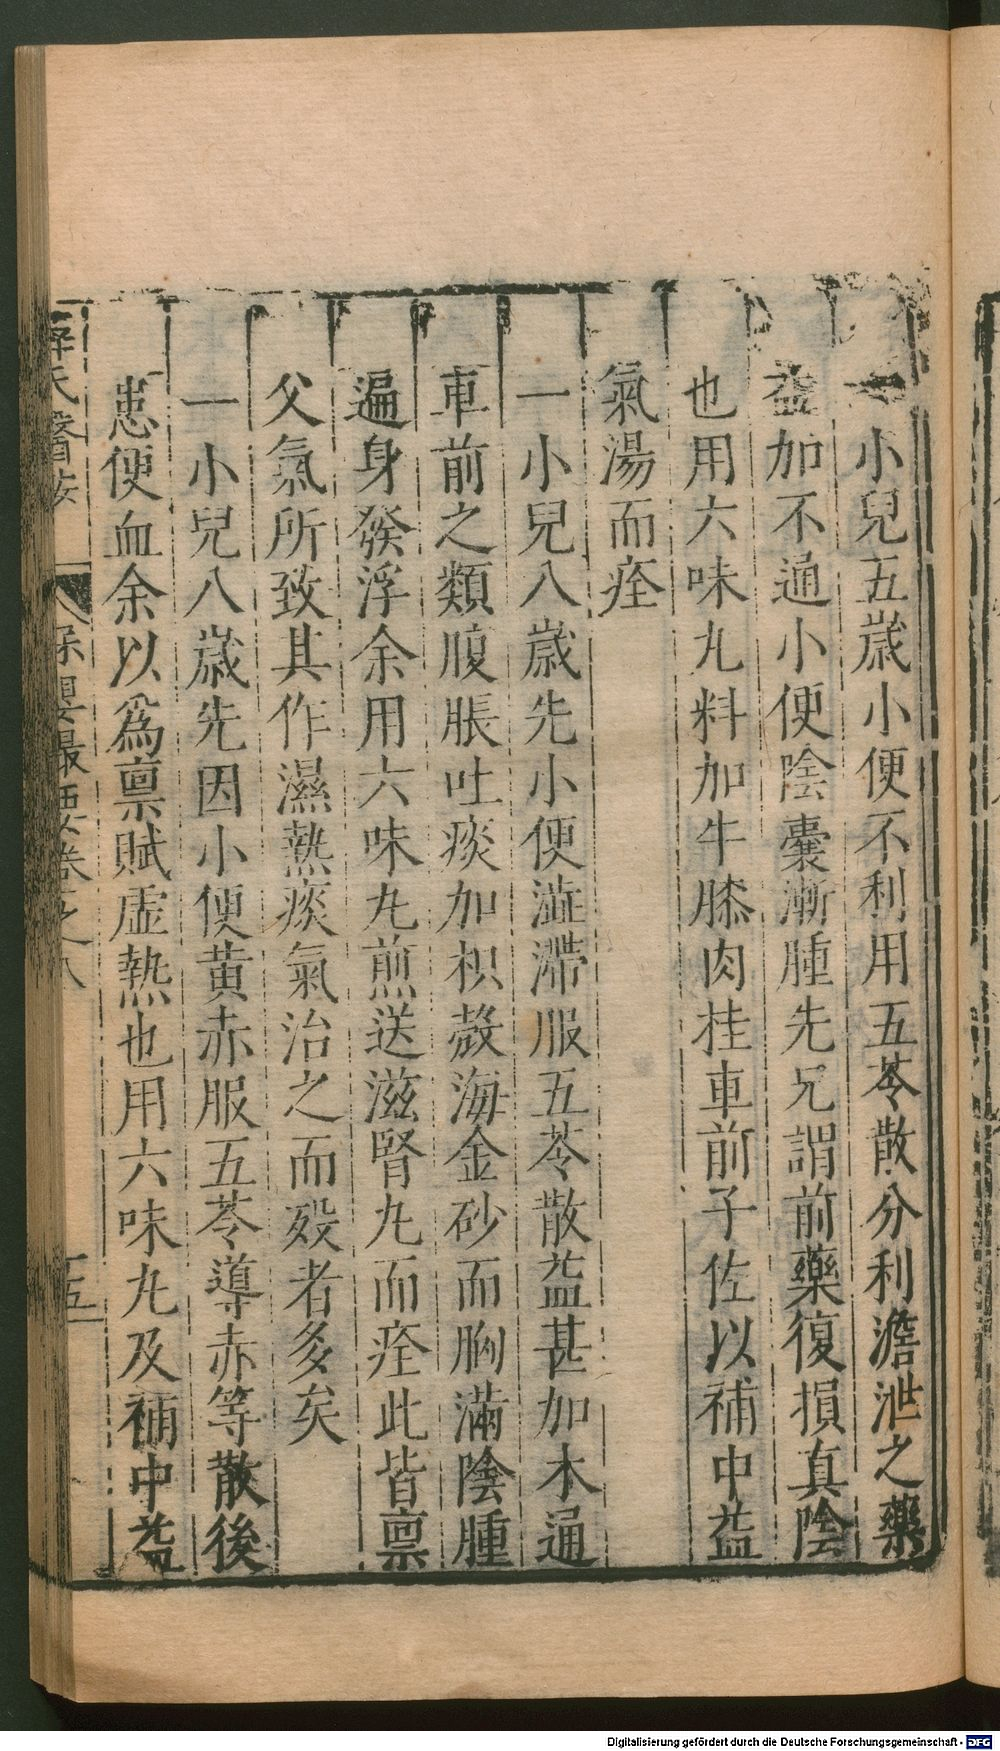 一小兒五歲小便不利用五苓散分利澹泄之藥
益加不通小便陰囊漸腫先兄謂前藥復損真陰
也用六味丸料加牛膝肉桂車前子佐以補中益
氣湯而痊
一小兒八歲先小便澁滯服五苓散益甚加木通
車前之類腹脹吐痰加枳殼海金砂而胸滿陰腫
遍身發浮余用六味丸煎送滋腎丸而痊此皆禀
父氣所致其作濕熱痰氣治之而歿者多矣
一小兒八歲先因小便黃赤服五苓導赤等散後
患便血余以爲禀賦虛熱也用六味丸及補中益
薛氏醫按
保嬰撮要卷之八
十五
Digitalisierung gefördert durch die Deutsche Forschungsgemeinschaft - DFG